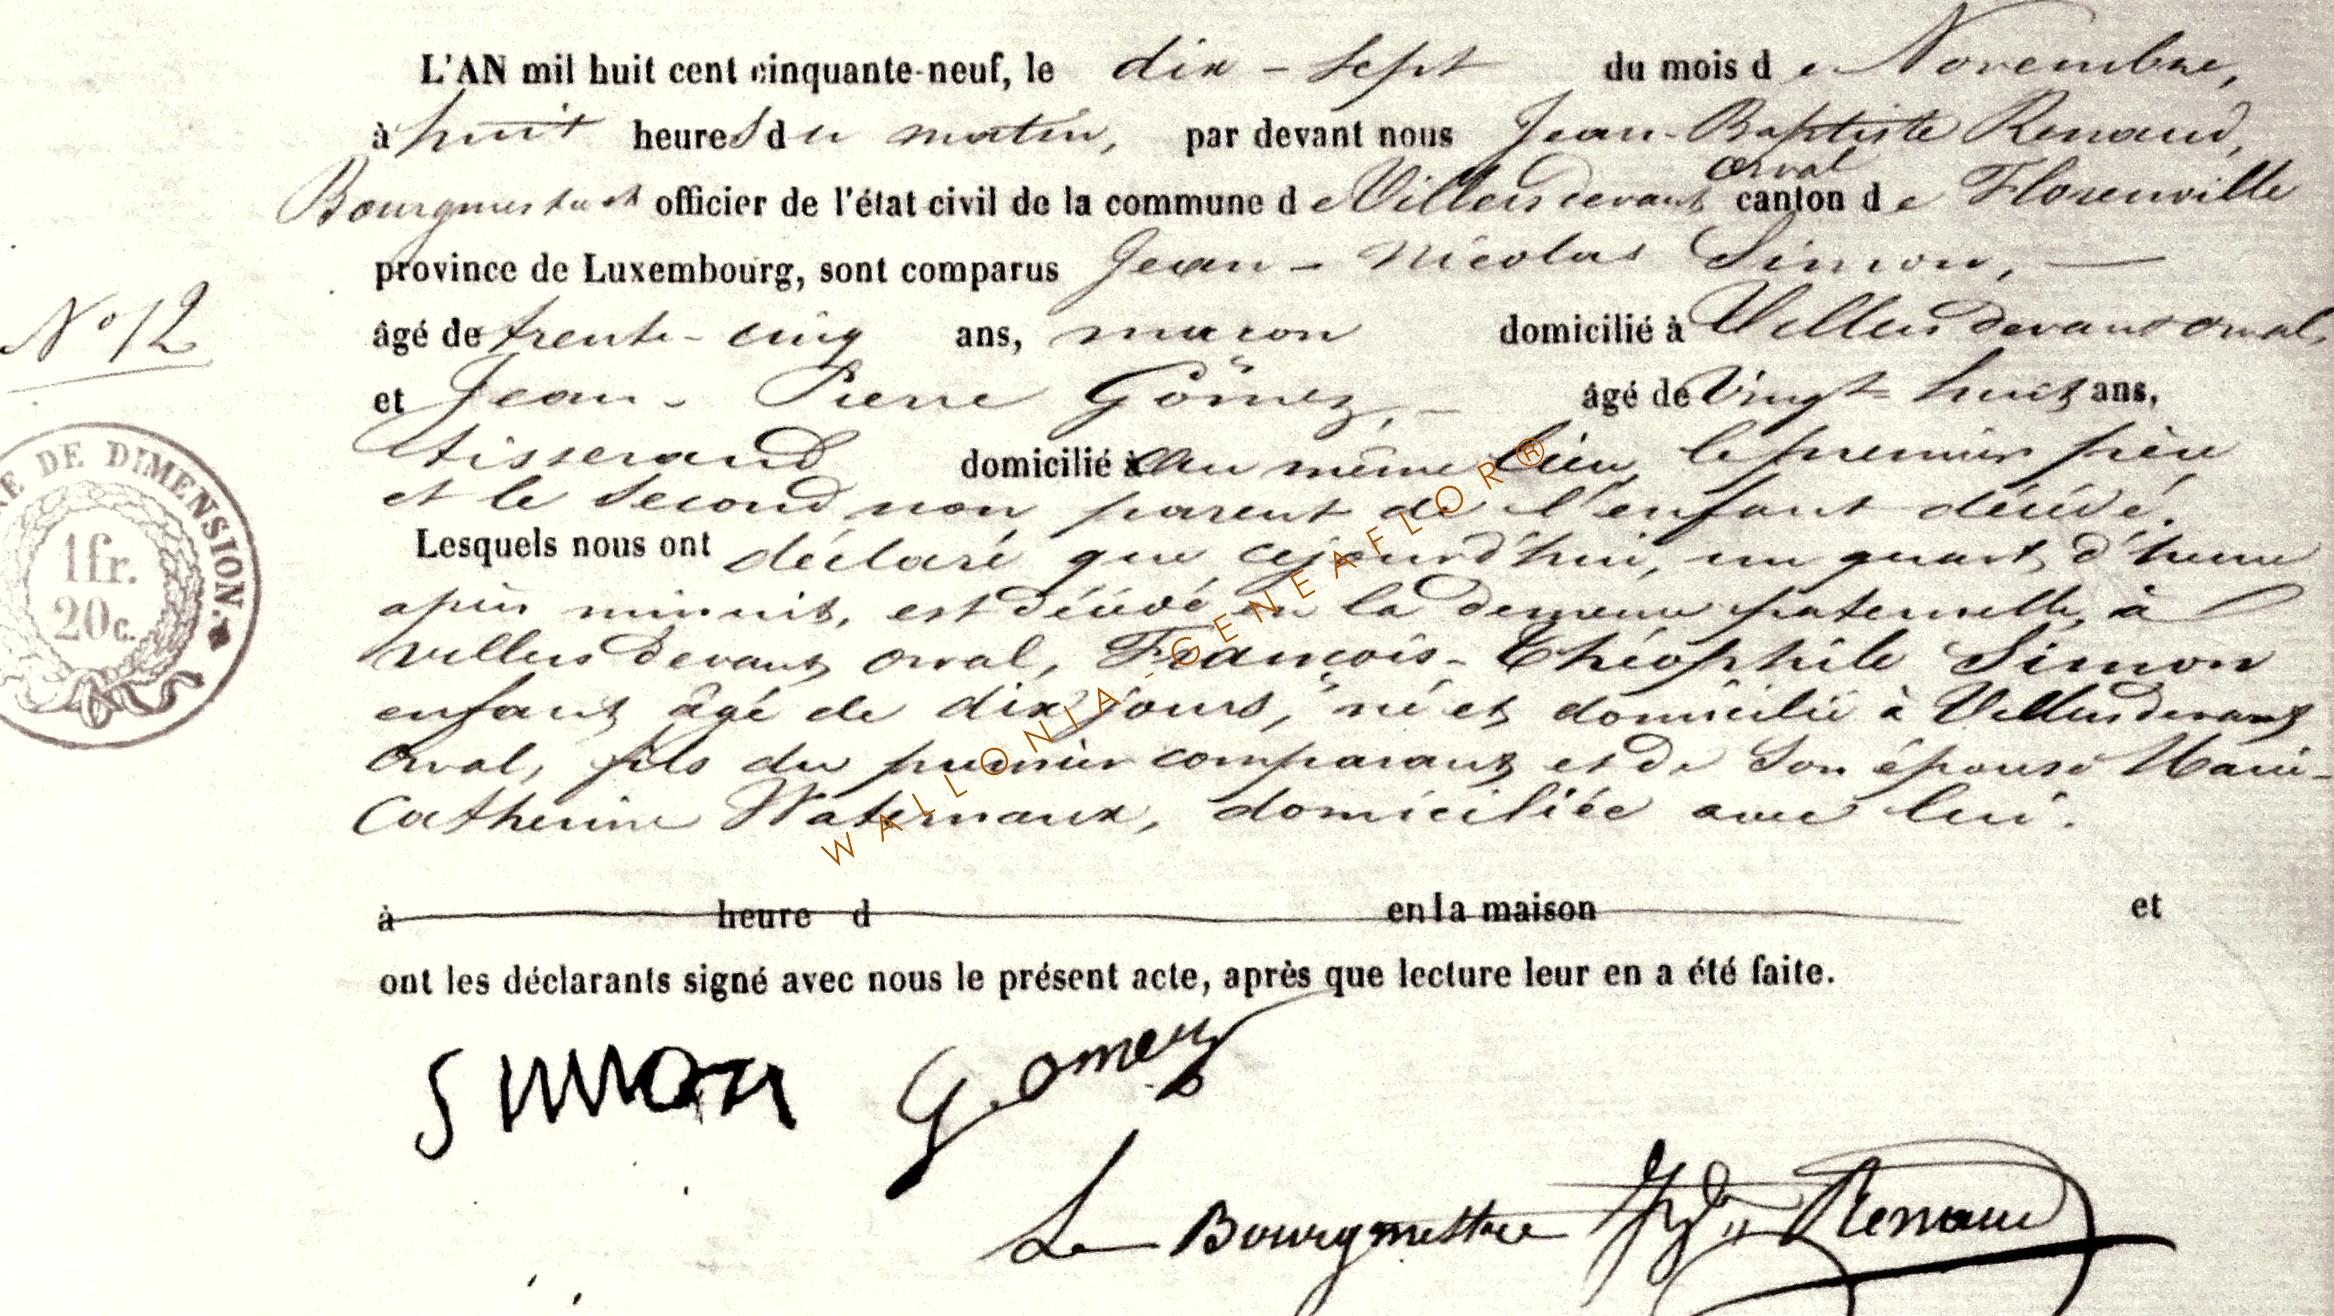 L'AN mil huit cent cinquante-neuf, le dix-sept du mois de Novembre,
à huit heures du matin, par devant nous Jean-Baptiste Renaud,
Orval
Bourgmestre et officier de l'état civil de la commune de Villers devant canton de Florenville
province de Luxembourg, sont comparus Jean-Nicolas Simon,
N° 12
âgé de trente-cinq ans, maçon domicilié à Villers devant orval,
et Jean-Pierre Gömez, âgé de Vingt-huit ans,
tisserand domicilié au même lieu, le premier père
et le second non parent de l'enfant décédé.
Lesquels nous ont déclaré que cejourd'hui, un quart d'heure
après minuit, est décédé en la demeure paternelle, à
villers devant orval, François-Théophile Simon
enfant âgé de dix jours, né et domicilié à Villers devant
Orval, fils du premier comparant et de son épouse Marie-
Catherine Waternaux, domiciliée avec lui.
à heure d en la maison et
ont les déclarants signé avec nous le présent acte, après que lecture leur en a été faite.
Simon Gomez
Le Bourgmestre Renaud
RE DE DIMENSION.
1fr.
20c.
WALLONIA-GENEAFLOR®